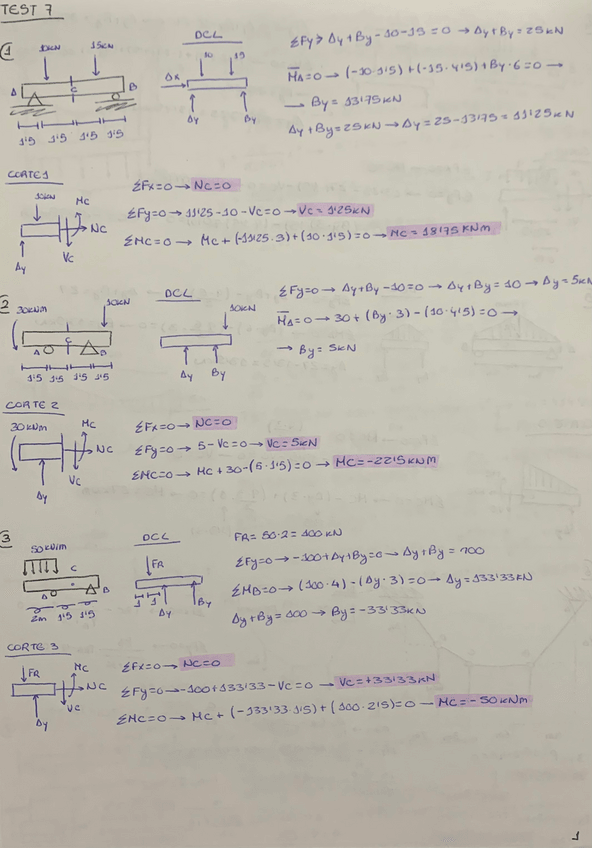 TEST 7
1
10kN 15kN
A C B
1'5 1'5 1'5 1'5
DCL
10 15
Ax
Ay By
ΣFy→ Ay+By-10-15=0 → Ay+By=25kN
MA=0 → (-10·1'5)+(-15·4'5)+By·6=0 →
→ By=13'75kN
Ay+By=25kN → Ay=25-13'75=11'25kN
CORTE 1
10kN
Mc
Nc
Vc
Ay
ΣFx=0 → Nc=0
ΣFy=0 → 11'25-10-Vc=0 → Vc=1'25kN
ΣMc=0 → Mc+(-11'25·3)+(10·1'5)=0 → Mc=18'75kNm
2
30kNm 10kN
A C B
1'5 1'5 1'5 1'5
DCL
10kN
Ay By
ΣFy=0 → Ay+By-10=0 → Ay+By=10 → Ay=5kN
MA=0 → 30+(By·3)-(10·4'5)=0 →
→ By=5kN
CORTE 2
30kNm
Mc
Nc
Vc
Ay
ΣFx=0 → Nc=0
ΣFy=0 → 5-Vc=0 → Vc=5kN
ΣMc=0 → Mc+30-(5·1'5)=0 → Mc=-22'5kNm
3
50kN/m
C
A B
2m 1'5 1'5
DCL
FR
1 1
Ay By
FR=50·2=100kN
ΣFy=0 → -100+Ay+By=0 → Ay+By=100
ΣMB=0 → (100·4)-(Ay·3)=0 → Ay=133'33kN
Ay+By=100 → By=-33'33kN
CORTE 3
FR
Mc
Nc
Vc
Ay
ΣFx=0 → Nc=0
ΣFy=0 → -100+133'33-Vc=0 → Vc=+33'33kN
ΣMc=0 → Mc+(-133'33·1'5)+(100·2'5)=0 → Mc=-50kNm
1